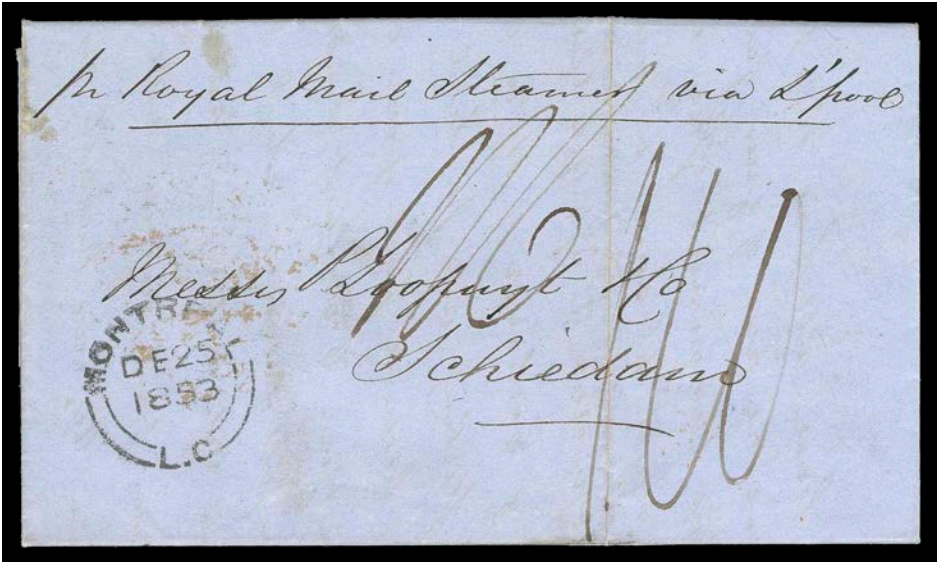 pr Royal Mail Steamer via L'pool
Messrs Loopuyt & Co
Schiedam
MONTREAL
DE 25
1853
L.C